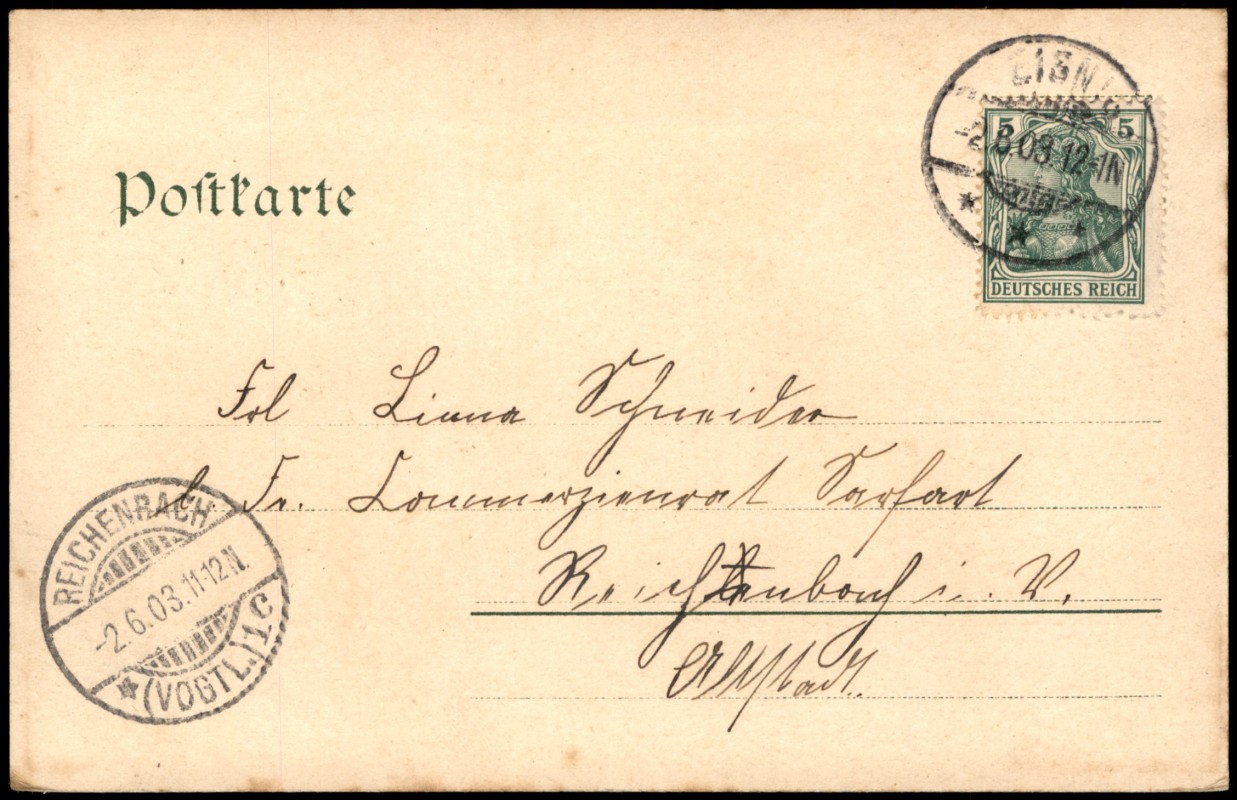 Postkarte
-2.6.03.12-1N
5 5
DEUTSCHES REICH
Frl Liana Schneider
b. Fr. Commerzienrat Sarfert
Reichenbach i. V.
Altstadt.
REICHENBACH
-2.6.03.11-12N.
* (VOGTL.) 1c